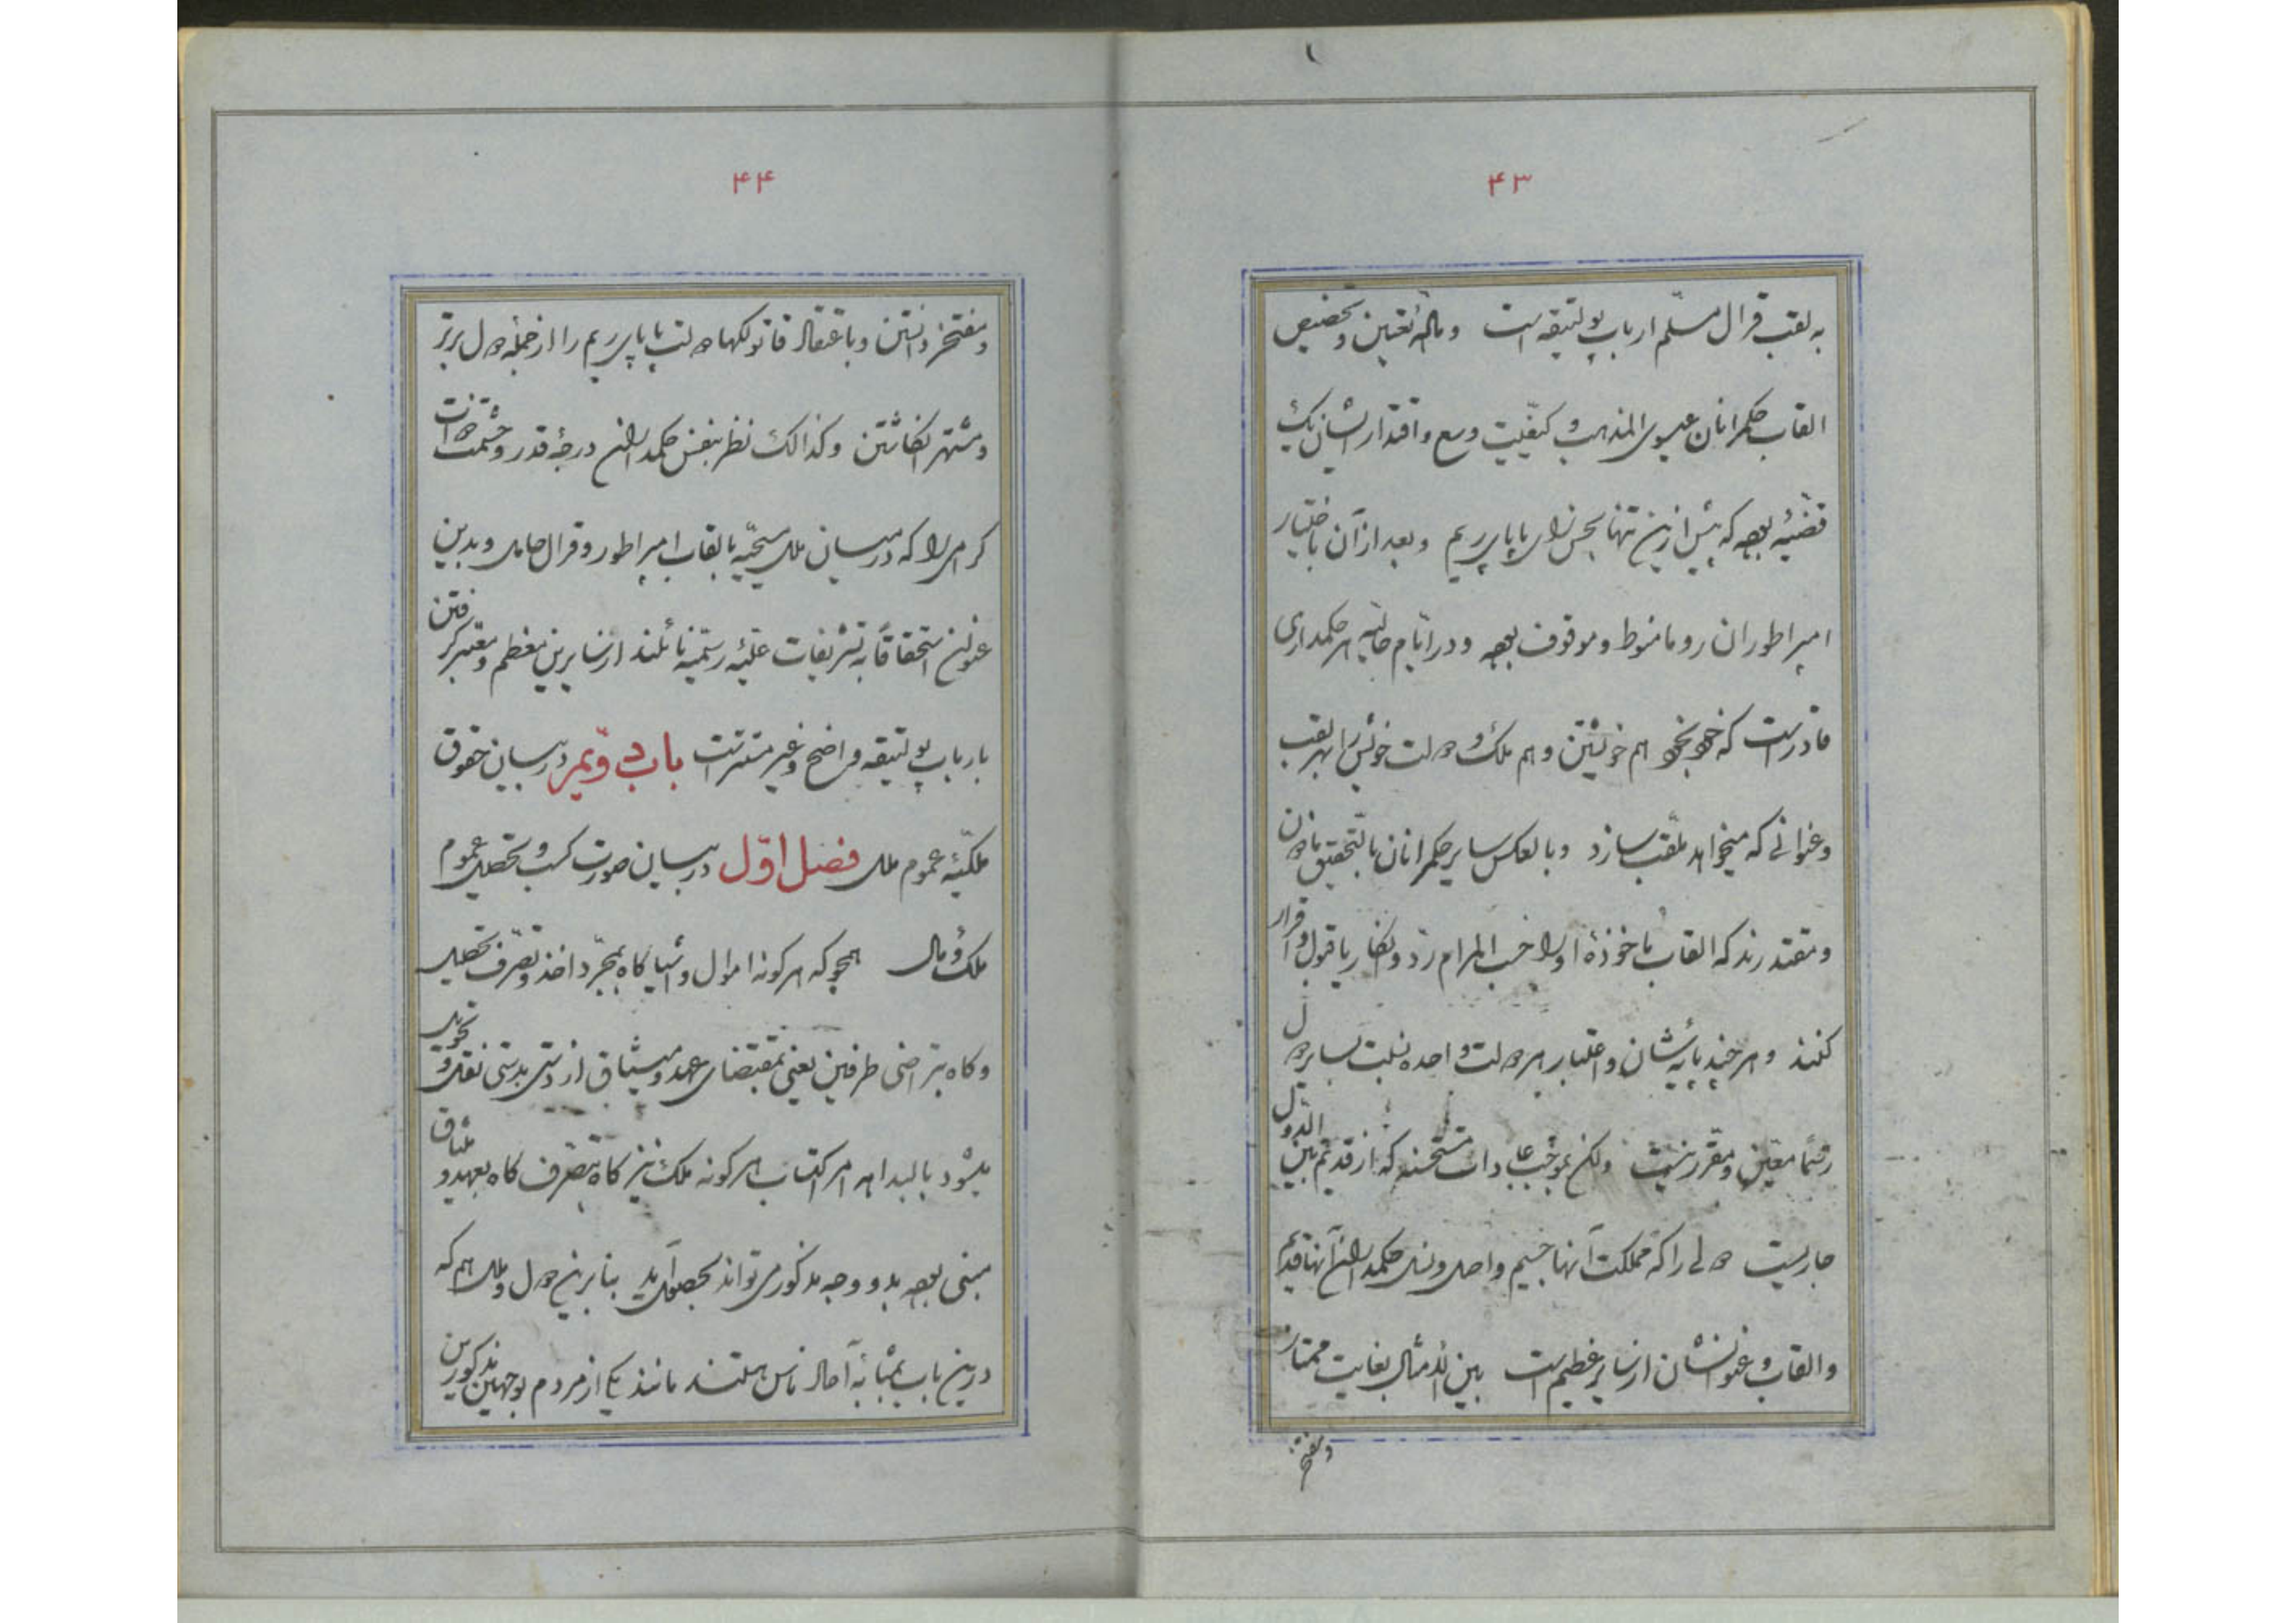 ۴۳
به لقب قرال مسلّم ارباب پولتیقه است و مالهٔ تعیین و تخصیص
القاب حکمرانان عیسوی المذهب و کیفیّت وسع و اقتدار ایشان یک
قضیّه بوده که پیش ازین تنها بحسن رای پاپای ریم و بعد از آن باختیار
امپراطوران روما منوط و موقوف بوده و در ایّام حالیّه هر حکمداری
قادر است که خود بخود هم خویشتن و هم ملک و دولت خویش را بهر لقب
و عنوانی که میخواهد ملقّب سازد و بالعکس سایر حکمرانان بالتّحقیق ماذون
و مقتدرند که القاب ماخوذهٔ او را حسب المرام ردّ و انکار یا قبول و اقرار
کنند و هر چند پایهٔ شان و اعتبار هر دولت واحده نسبت بسایر دول
رسماً معیّن و مقرّر نیست ولکن بموجب عادات مستحسنه که از قدیم بین الدّول
جاریست دولی را که مملکت آنها جسیم و اصل و نسل حکمداران آنها قدیم
و القاب و عنوانشان از سایر عظیم است بین الامثال بغایت ممتاز
و مفتخر
۴۴
و مفتخر دانستن و باعتقاد قاتولکها دولت پاپای ریم را از جمله دول برتر
و مشتهر انگاشتن و کذالک نظر بنفس حکمداران درجهٔ قدر و حشمت ذات
کرامی را که در میان ملل مسیحیّه بالقاب امپراطور و قرال حامل و بدین
عنوان استحقاقاً به تشریفات علیّه رسمیّه نائلند از سایرین معظم و معتبر گرفتن
بارباب پولتیقه واضح و غیر مستتر است باب دویّم در بیان حقوق
ملکیّهٔ عموم ملل فصل اوّل در بیان صورت کسب و تحصیل عموم
ملک و مال همچو که هر کونه اموال و اشیا کاه بمجرّد اخذ و تصرّف تحصیل
و کاه بتراضی طرفین یعنی بمقتضای عهد و میثاق از دستی بدستی نقل و تحویل
میشود بالبداهه امر اکتساب هر کونه ملک نیز کاه بتصرّف کاه بعهد و میثاق
مبنی بوده بدو وجه مذکور می تواند بحصول آید بنابرین دول و ملل هم که
درین باب بمثابهٔ آحاد ناس هستند مانند یکی از مردم بوجهین مذکورین